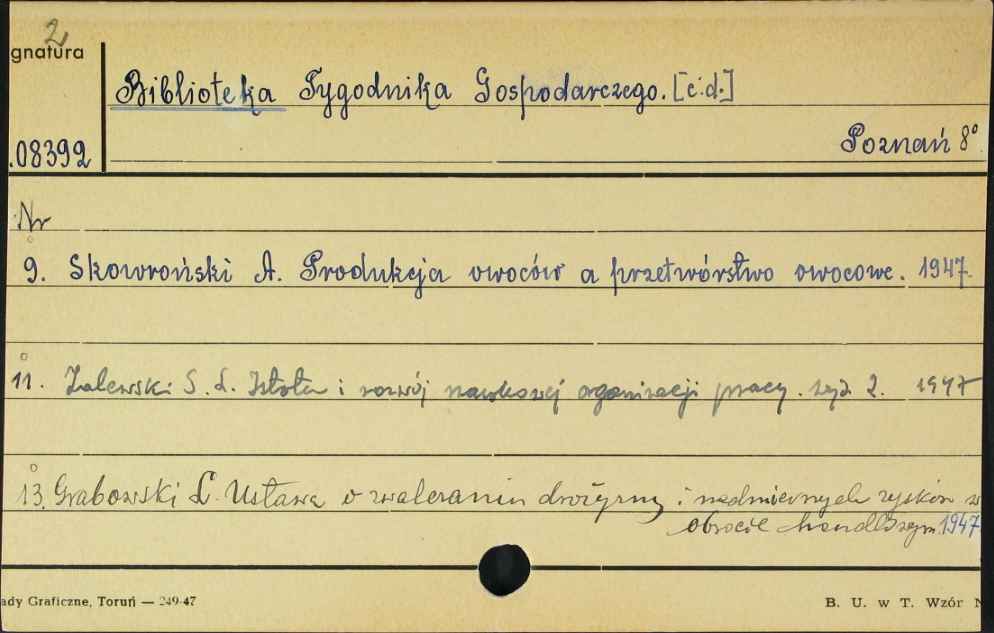 2
gnatura
Biblioteka Tygodnika Gospodarczego. [c.d.]
.08392
Poznań 8°
Nr
9. Skowroński A. Produkcja owoców a przetwórstwo owocowe. 1947.
11. Zalewski S. L. Istota i rozwój naukowej organizacji pracy. wyd. 2. 1947
13. Grabowski L. Ustawa o zwalczaniu drożyzny i nadmiernych zysków w
obrocie handlowym. 1947
ady Graficzne, Toruń — 249-47
B. U. w T. Wzór N